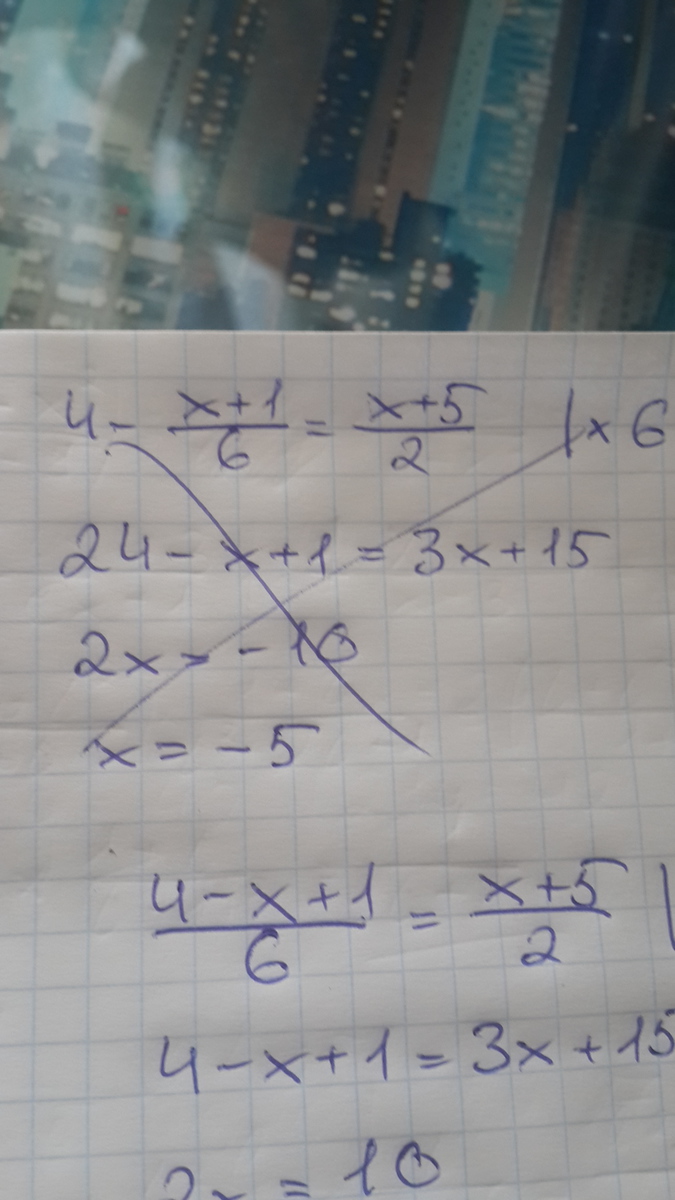 4 - \frac{x+1}{6} = \frac{x+5}{2} | × 6
24 - x + 1 = 3x + 15
2x = -10
x = -5
\frac{4-x+1}{6} = \frac{x+5}{2} |
4 - x + 1 = 3x + 15
2x = 10